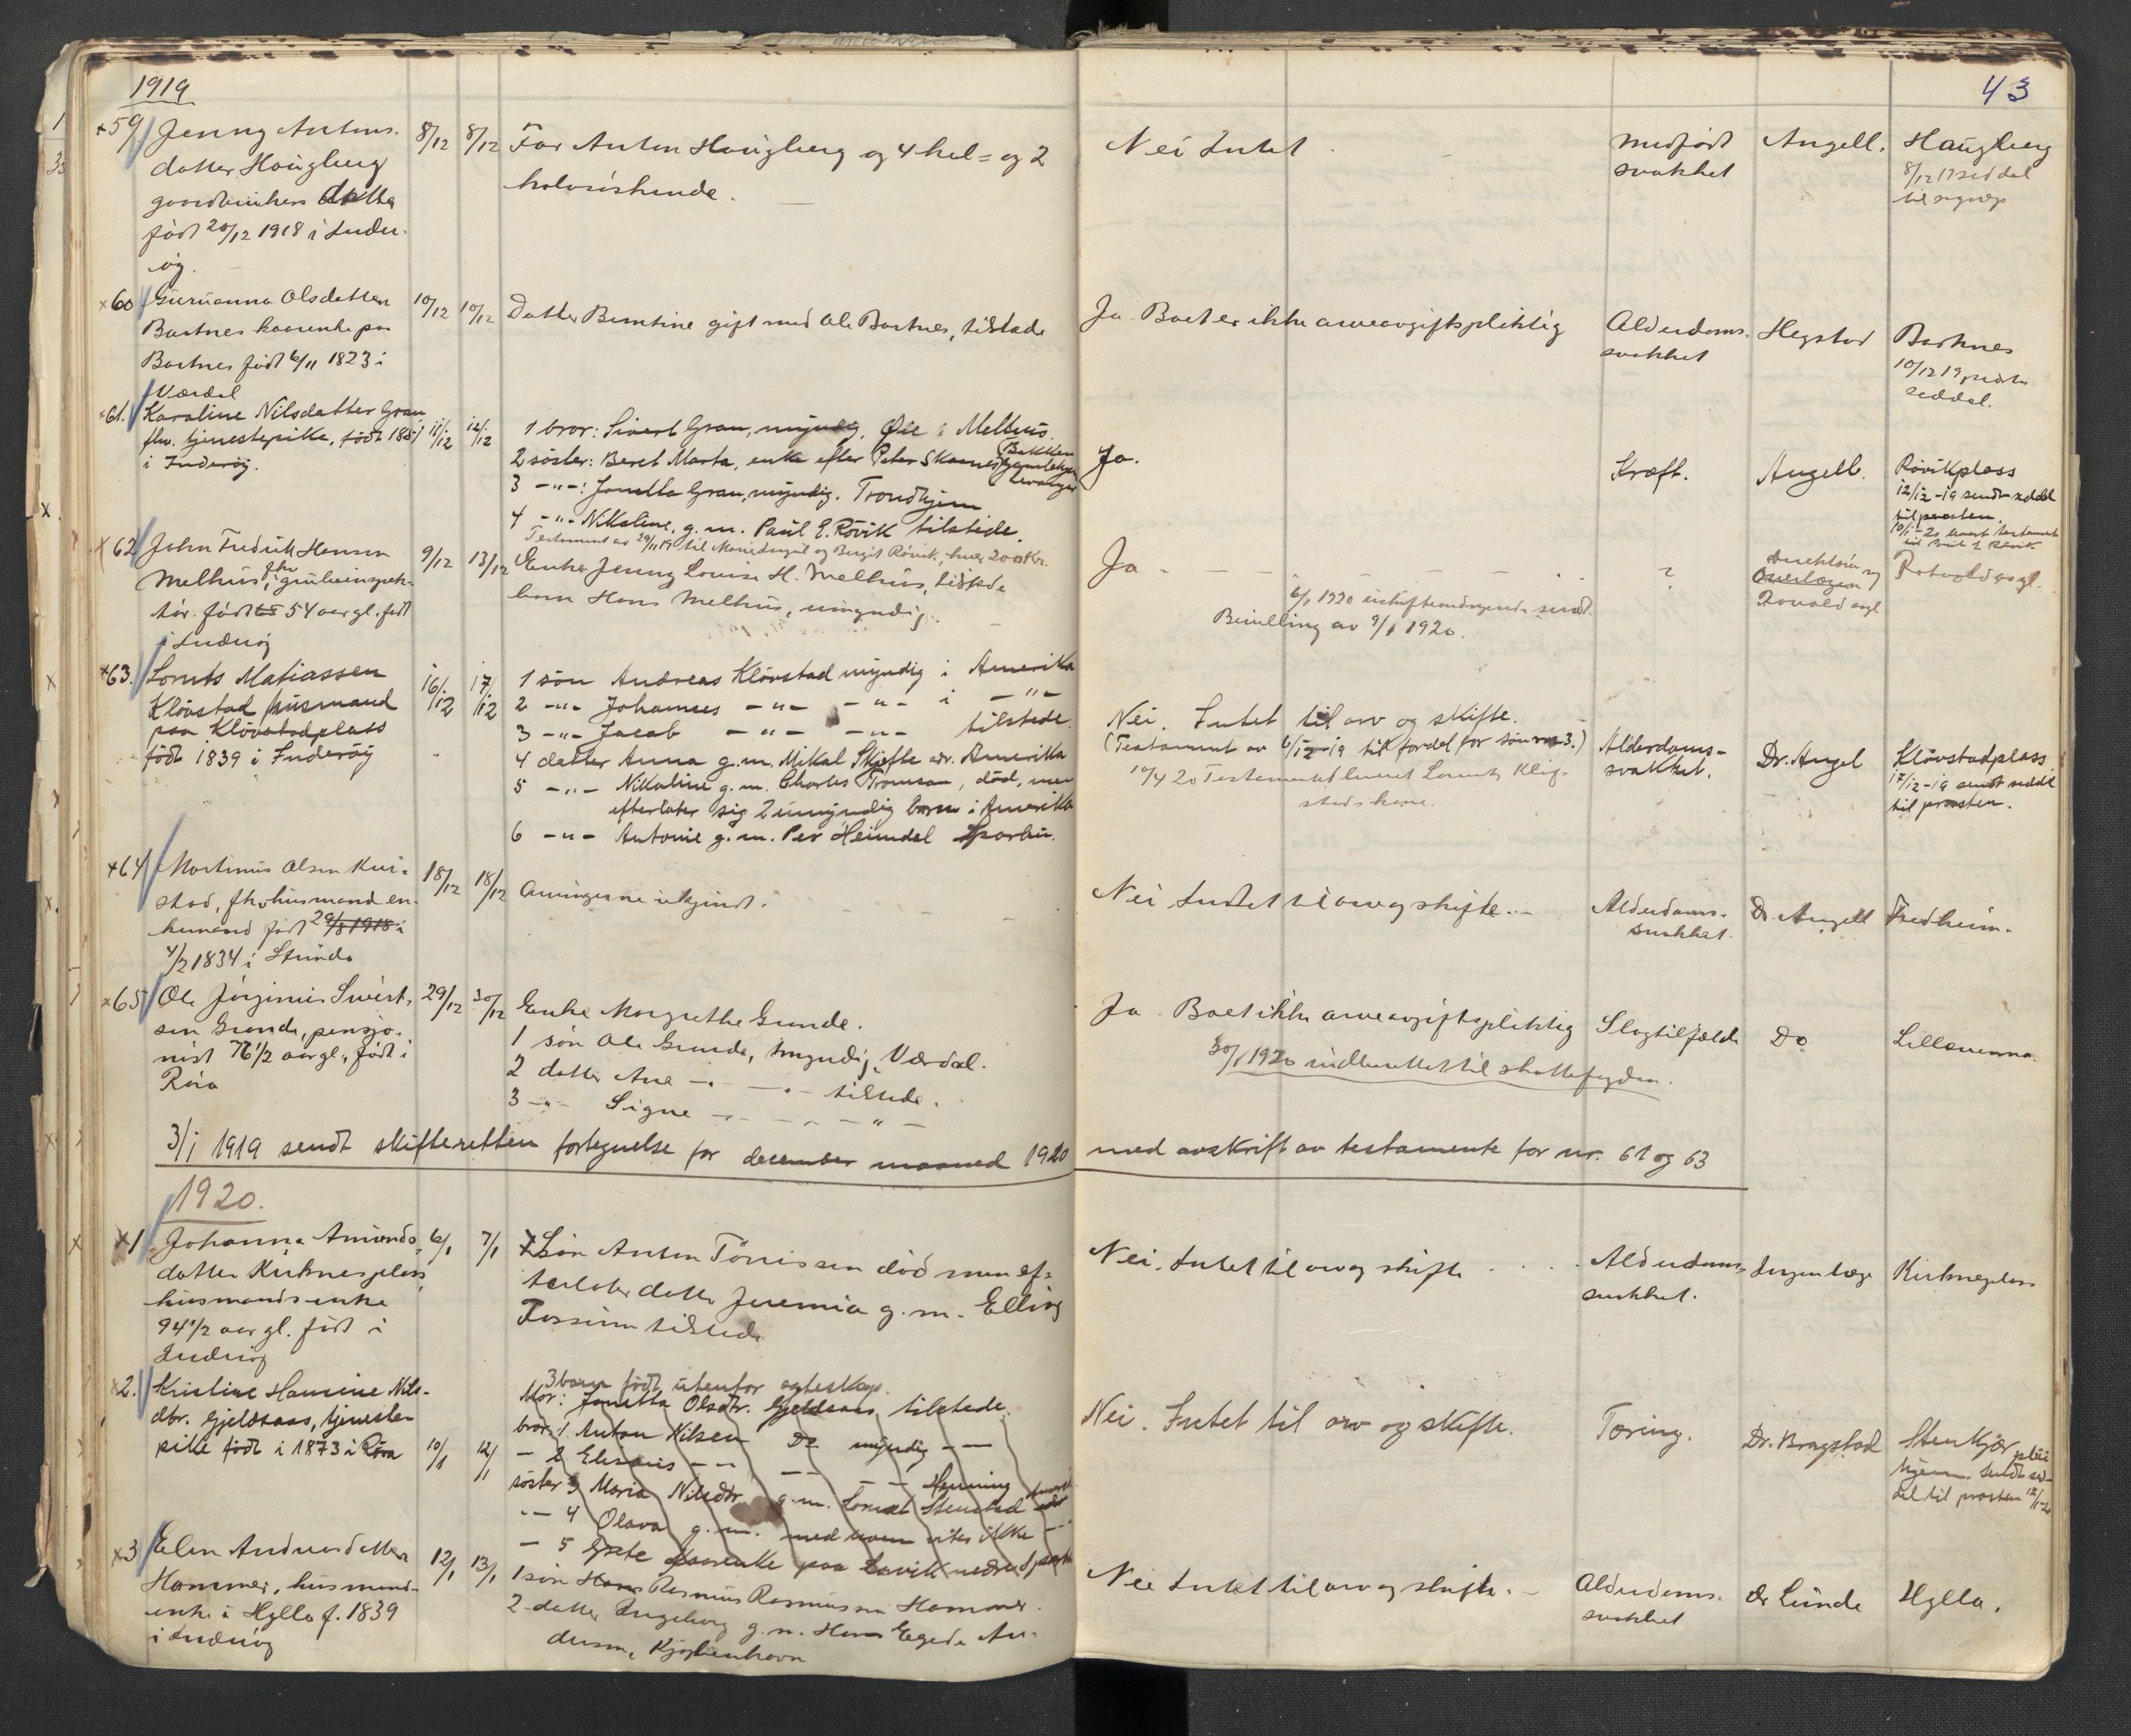 1919
43
+59 Jenny Antons-
datter Haugberg
gaardbrukers datter
født 20/12 1918 i Inder-
øy.
8/12
8/12
Far Anton Haugberg og 4 hel= og 2
halvsøskende.
Nei Intet
Medfødt
svakhet
Angell.
Haugberg
8/12 19 seddel
×60 Guruanna Olsdatter
Bartnes kaarenke paa
Bartnes født 6/11 1823 i
Værdal
10/12
10/12
Datter Berntine gift med Ole Bartnes, tilstede
Ja Boet er ikke arveavgiftspliktig
Alderdoms-
svakhet
Hegstad
Bartnes
10/12 19
seddel.
×61. Karoline Nilsdatter Gran
fhv. tjenestepike, født 1851
i Inderøy.
11/12
12/12
1 bror: Sivert Gran, myndig, Øie i Melhus.
2 søster: Beret Marta, enke efter Peter Skaanes Bakken
Levanger
3 -"-: Jonetta Gran, myndig. Trondhjem
4 -"- Nikoline, g. m. Paul E. Røvik tilstede.
Testament av 29/11 19 til og Birgit Røvik, hver 200 Kr.
Ja.
Kræft.
Angell.
Røvikplass
12/12-19 sendt seddel
til prosten.
×62 John Fredrik Hansen
Melhus, fhv gruveinspek-
tør. født 54 aar gl. født
i Inderøy
9/12
13/12
Enke Jenny Louise H. Melhus, tilstede
barn Hans Melhus, umyndig.
Ja - - - - -
6/1 1920 sendt.
Bevilling av 9/1 1920.
?
Direktør og
Overlægen
Rotvold asyl
Rotvold asyl.
+63. Lornts Matiassen
Kløvstad husmand
paa Kløvstadplass
født 1839 i Inderøy
16/12
17/12
1 søn Andreas Kløvstad myndig i Amerika
2 -"- Johannes -"- -"- i -"-
3 -"- Jacob -"- -"- tilstede.
4 datter Anna g. m. Mikal Skjefte adr. Amerika
5 -"- Nikoline g. m. Charles Tromsan, død, men
efterlater sig 2 umyndig barn i Amerika
6 -"- Antonie g. m. Per Heimdal Sparbu.
Nei. Intet til arv og skifte.
(Testament av 6/12-19 til fordel for søn nr 3.)
10/4 20 Testamentet leveret Lornts Kløv-
stads
Alderdoms-
svakhet.
Dr. Angel
Kløvstadplass
17/12-19 sendt seddel
til prosten.
+64 Martinus Olsen Kvi-
stad, fhv husmand en-
kemand født 29/8 1918 i
4/2 1834 i Strinda
18/12
18/12
Arvingerne ukjendt.
Nei Intet til arv og skifte. -
Alderdoms-
svakhet.
Dr Angell
Fredheim.
×65 Ole Jørginus Sivert-
sen Grande, pensjo-
nist 76 1/2 aar gl., født i
Røra
29/12
30/12
Enke Margrethe Grande.
1 søn Ole Grande, myndig, Værdal.
2 datter Ane -"- -"- tilstede.
3 -"- Signe -"- -"- -"-
Ja. Boet ikke arveavgiftspliktig
30/1 1920 indberettet til skattefogden.
Slagtilfælde
Do
Lillemoena
3/1 1919 sendt skifteretten fortegnelse for december maaned 1920 med avskrift av testamente for nr. 61 og 63
1920.
×1 Johanna Amunds-
datter Kirknesplass,
husmandsenke
94 1/2 aar gl. født i
Inderøy
6/1
7/1
1 Søn Anton Tønissen død men ef-
terlater datter Jeremia g. m. Elling
Fossum tilstede
Nei. Intet til arv og skifte
Alderdoms-
svakhet.
Ingen læge
Kirknesplass
×2. Kristine Hansine Nils-
dtr. Gjeldsaas, tjeneste-
pike født i 1873 i Røra
10/1
12/1
3 barn født utenfor egteskap.
Mor: Jonetta Olsdtr. Gjeldsaas, tilstede.
bror 1. Anton Nilsen Do myndig - -
- 2 Elisæus - " - - - - - Henning
søster 3 Maria Nilsdtr g. m. Lornt Stenstad
- " - 4 Olava g. m. med hvem vites ikke - " -
- 5 Grete kaarenke paa Lovik nedre Sparbu
Nei. Intet til arv og skifte.
Tæring.
Dr. Bragstad
Stenkjær pleie
hjem. Sendt sed-
del til prosten 12/1-20
×3 Elen Andreasdatter
Hammer, husmands-
enke i Hylla f. 1839
i Inderøy
12/1
13/1
1 søn Hans Rasmus Rasmussen Hammer.
2 datter Ingeborg g. m. Hans Egede An-
dersen, Kjøbenhavn
Nei Intet til arv og skifte. -
Alderdoms-
svakhet
Dr Lunde
Hylla.